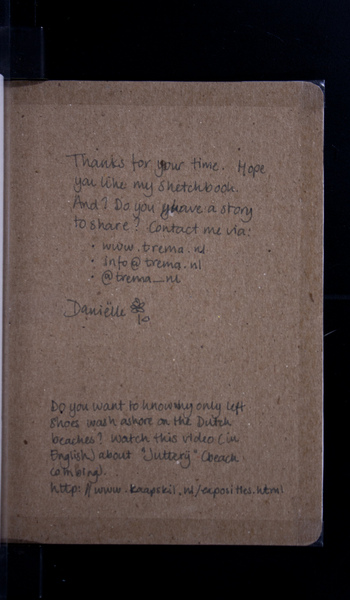 Thanks for your time. Hope
you like my sketchbook.
And? Do you have a story
to share? Contact me via:
• www.trema.nl
• info@trema.nl
• @trema_nl
Daniëlle
Do you want to know why only left
shoes wash ashore on the Dutch
beaches? Watch this video (in
English) about "Juttery" (beach
combing).
http://www.kaapskil.nl/exposities.html